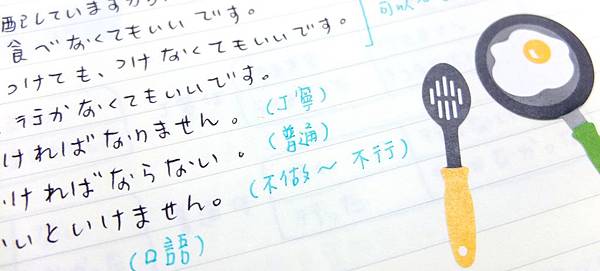 配しています
食べなくてもいいです。
つけても、つけなくてもいいです。
行かなくてもいいです。
ければなりません。(丁寧)
ければならない。(普通)
いといけません。(不做~不行)
(口語)